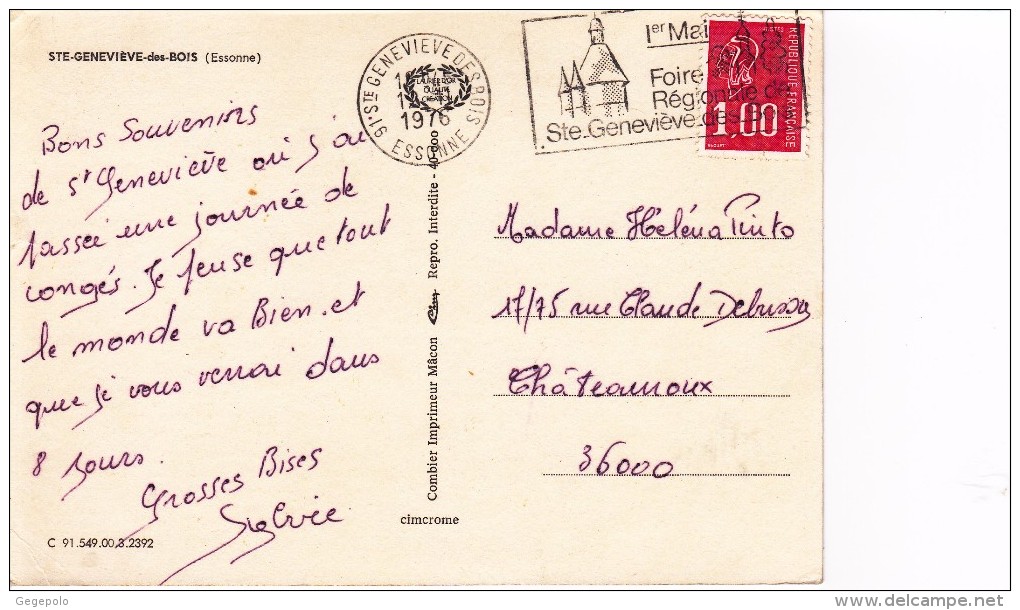 STE-GENEVIÈVE-des-BOIS (Essonne)
Bons Souvenirs
de St Geneviève où j'ai
passée une journée de
congés. Je pense que tout
le monde va Bien. et
que je vous verrai dans
8 jours.
Grosses Bises
Sylvie
C 91.549.00.3.2392
91-STE GENEVIEVE DES BOIS
ESSONNE
1976
LAURÉAT D'OR
QUALITÉ
CRÉATION
Combier Imprimeur Mâcon Cim Repro. Interdite - 40-800
cimcrome
1er Mai
Foire
Régionale de
Ste.Geneviève.des.Bo
POSTES
REPUBLIQUE FRANÇAISE
1,00
Madame Héléna Pinto
17/75 rue Claude Debussy
Châteauroux
36000
Gegepolo